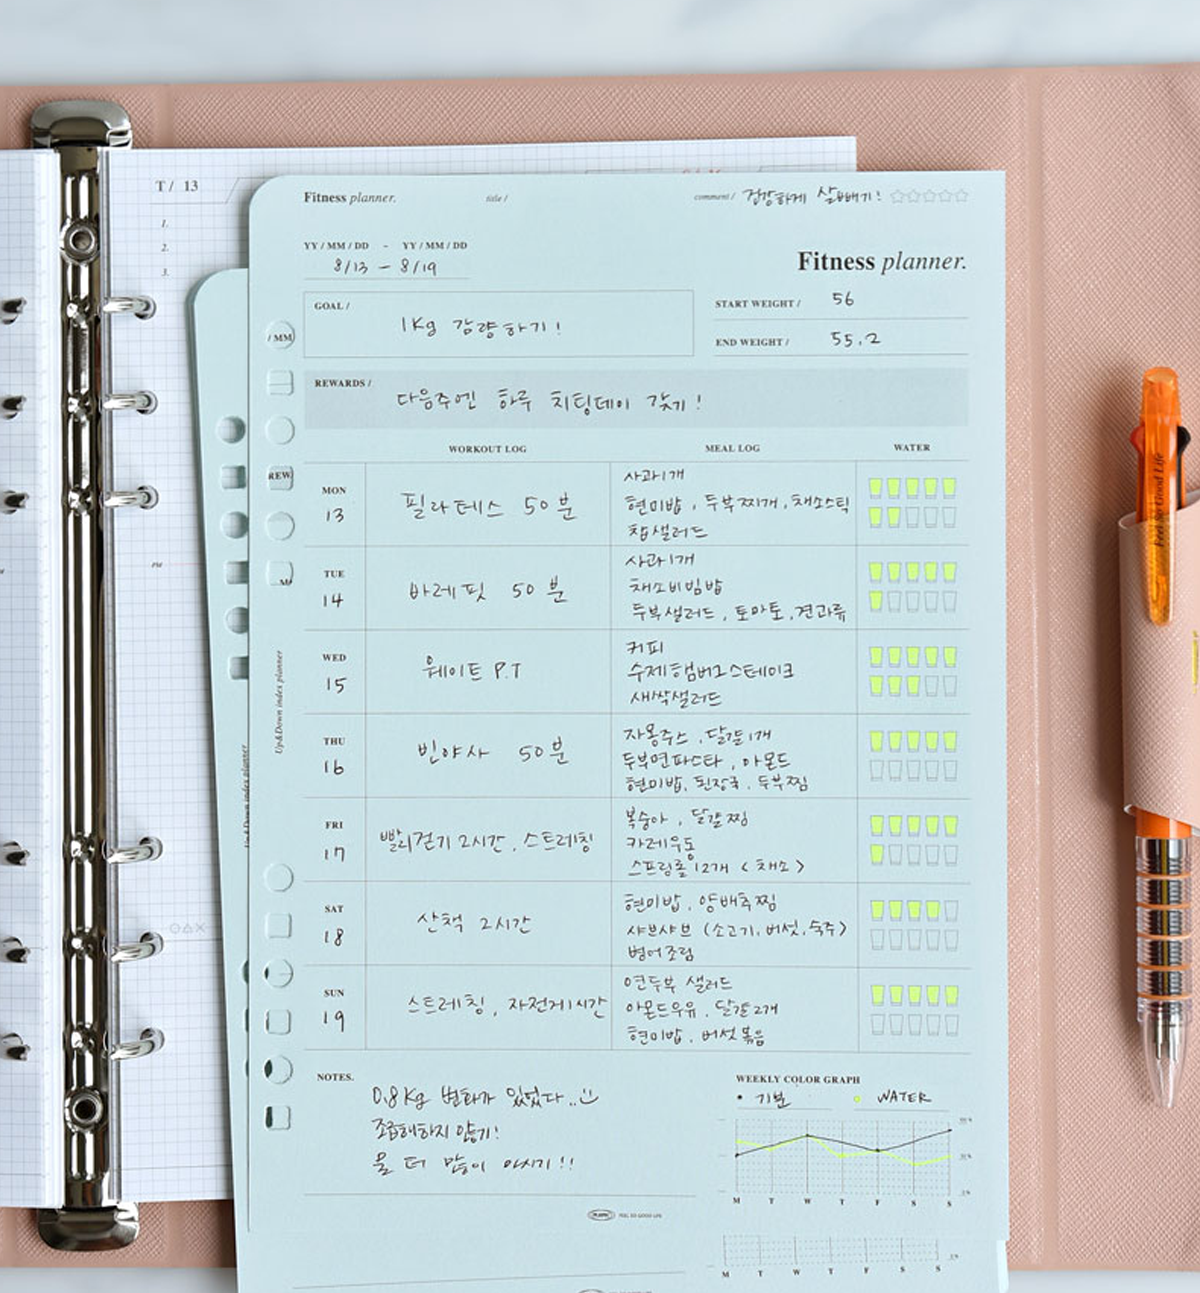 T / 13
1.
2.
3.
Fitness planner.
title /
comment / 건강하게 살빼기!
YY / MM / DD - YY / MM / DD
8/13 - 8/19
Fitness planner.
GOAL /
1Kg 감량하기!
START WEIGHT / 56
END WEIGHT / 55.2
/ MM
REWARDS /
다음주엔 하루 치팅데이 갖기!
WORKOUT LOG MEAL LOG WATER
REW
MON
13
필라테스 50분
사과1개
현미밥, 두부찌개, 채소스틱
참샐러드
TUE
14
바레핏 50분
사과1개
채소비빔밥
두부샐러드, 토마토, 견과류
WED
15
웨이트 P.T
커피
수제햄버그스테이크
새싹샐러드
THU
16
빈야사 50분
자몽주스, 달걀1개
두부면파스타, 아몬드
현미밥, 된장국, 두부찜
FRI
17
빨리걷기 2시간, 스트레칭
복숭아, 달걀찜
카레우동
스프링롤 12개 <채소>
SAT
18
산책 2시간
현미밥, 양배추찜
샤브샤브 (소고기, 버섯, 숙주)
병어조림
SUN
19
스트레칭, 자전거1시간
연두부 샐러드
아몬드우유, 달걀2개
현미밥, 버섯볶음
Up&Down index planner
Up&Down index planner
NOTES.
0.8Kg 변화가 있었다..
조급해하지 않기!
물 더 많이 마시기!!
WEEKLY COLOR GRAPH
기분 WATER
M T W T F S S
FEEL SO GOOD LIFE
M T W T F S S
Feel So Good Life